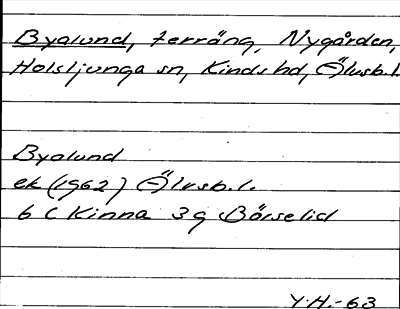 Byalund, terräng, Nygården,
Holsljunga sn, Kinds hd, Älvsb.l.
Byalund
ek (1962) Älvsb.l.
6 C Kinna 3g Börselid
Y.H.-63